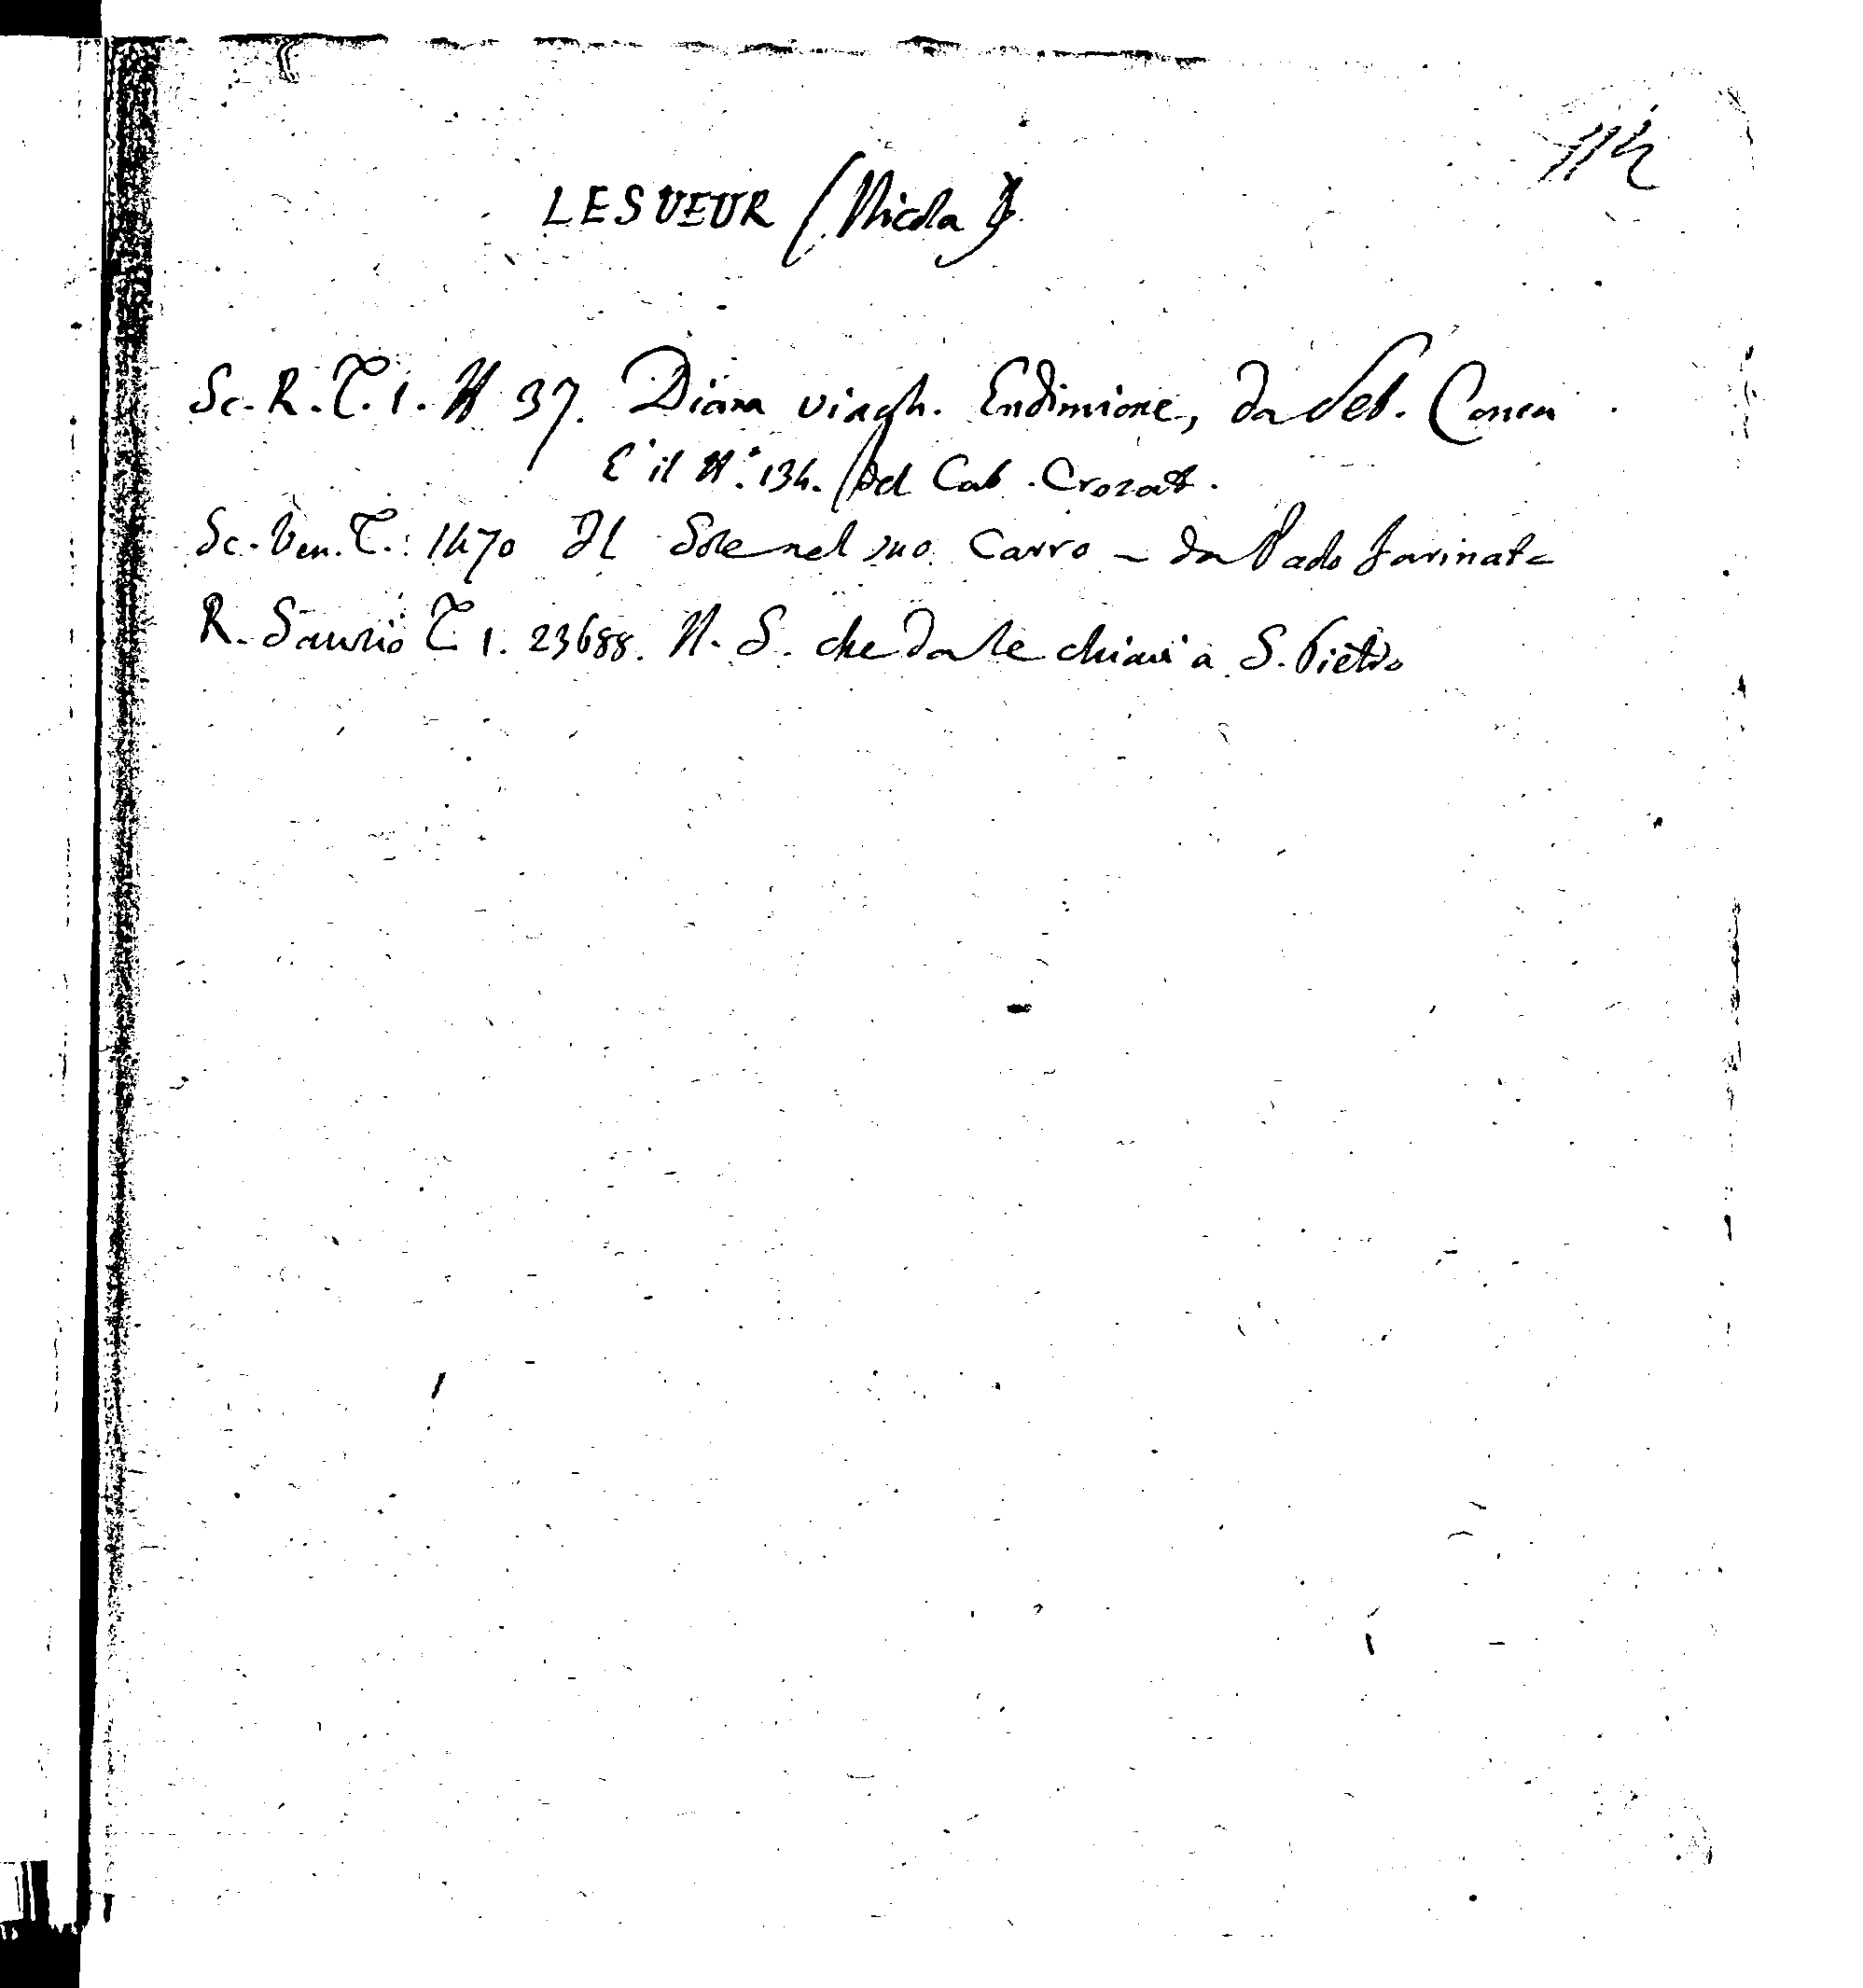 114
LESUEUR (Nicola)
Sc. R. T. 1. N 37. Diana vaagh. Endimione, da Seb. Conca.
E' il N.° 134. del Cab. Crozat.
Sc. Ven. T. 1470 Il Sole nel suo Carro - da Paolo Farinate
R. Sanzio T 1. 23688. N. S. che da le chiavi a S. Pietro